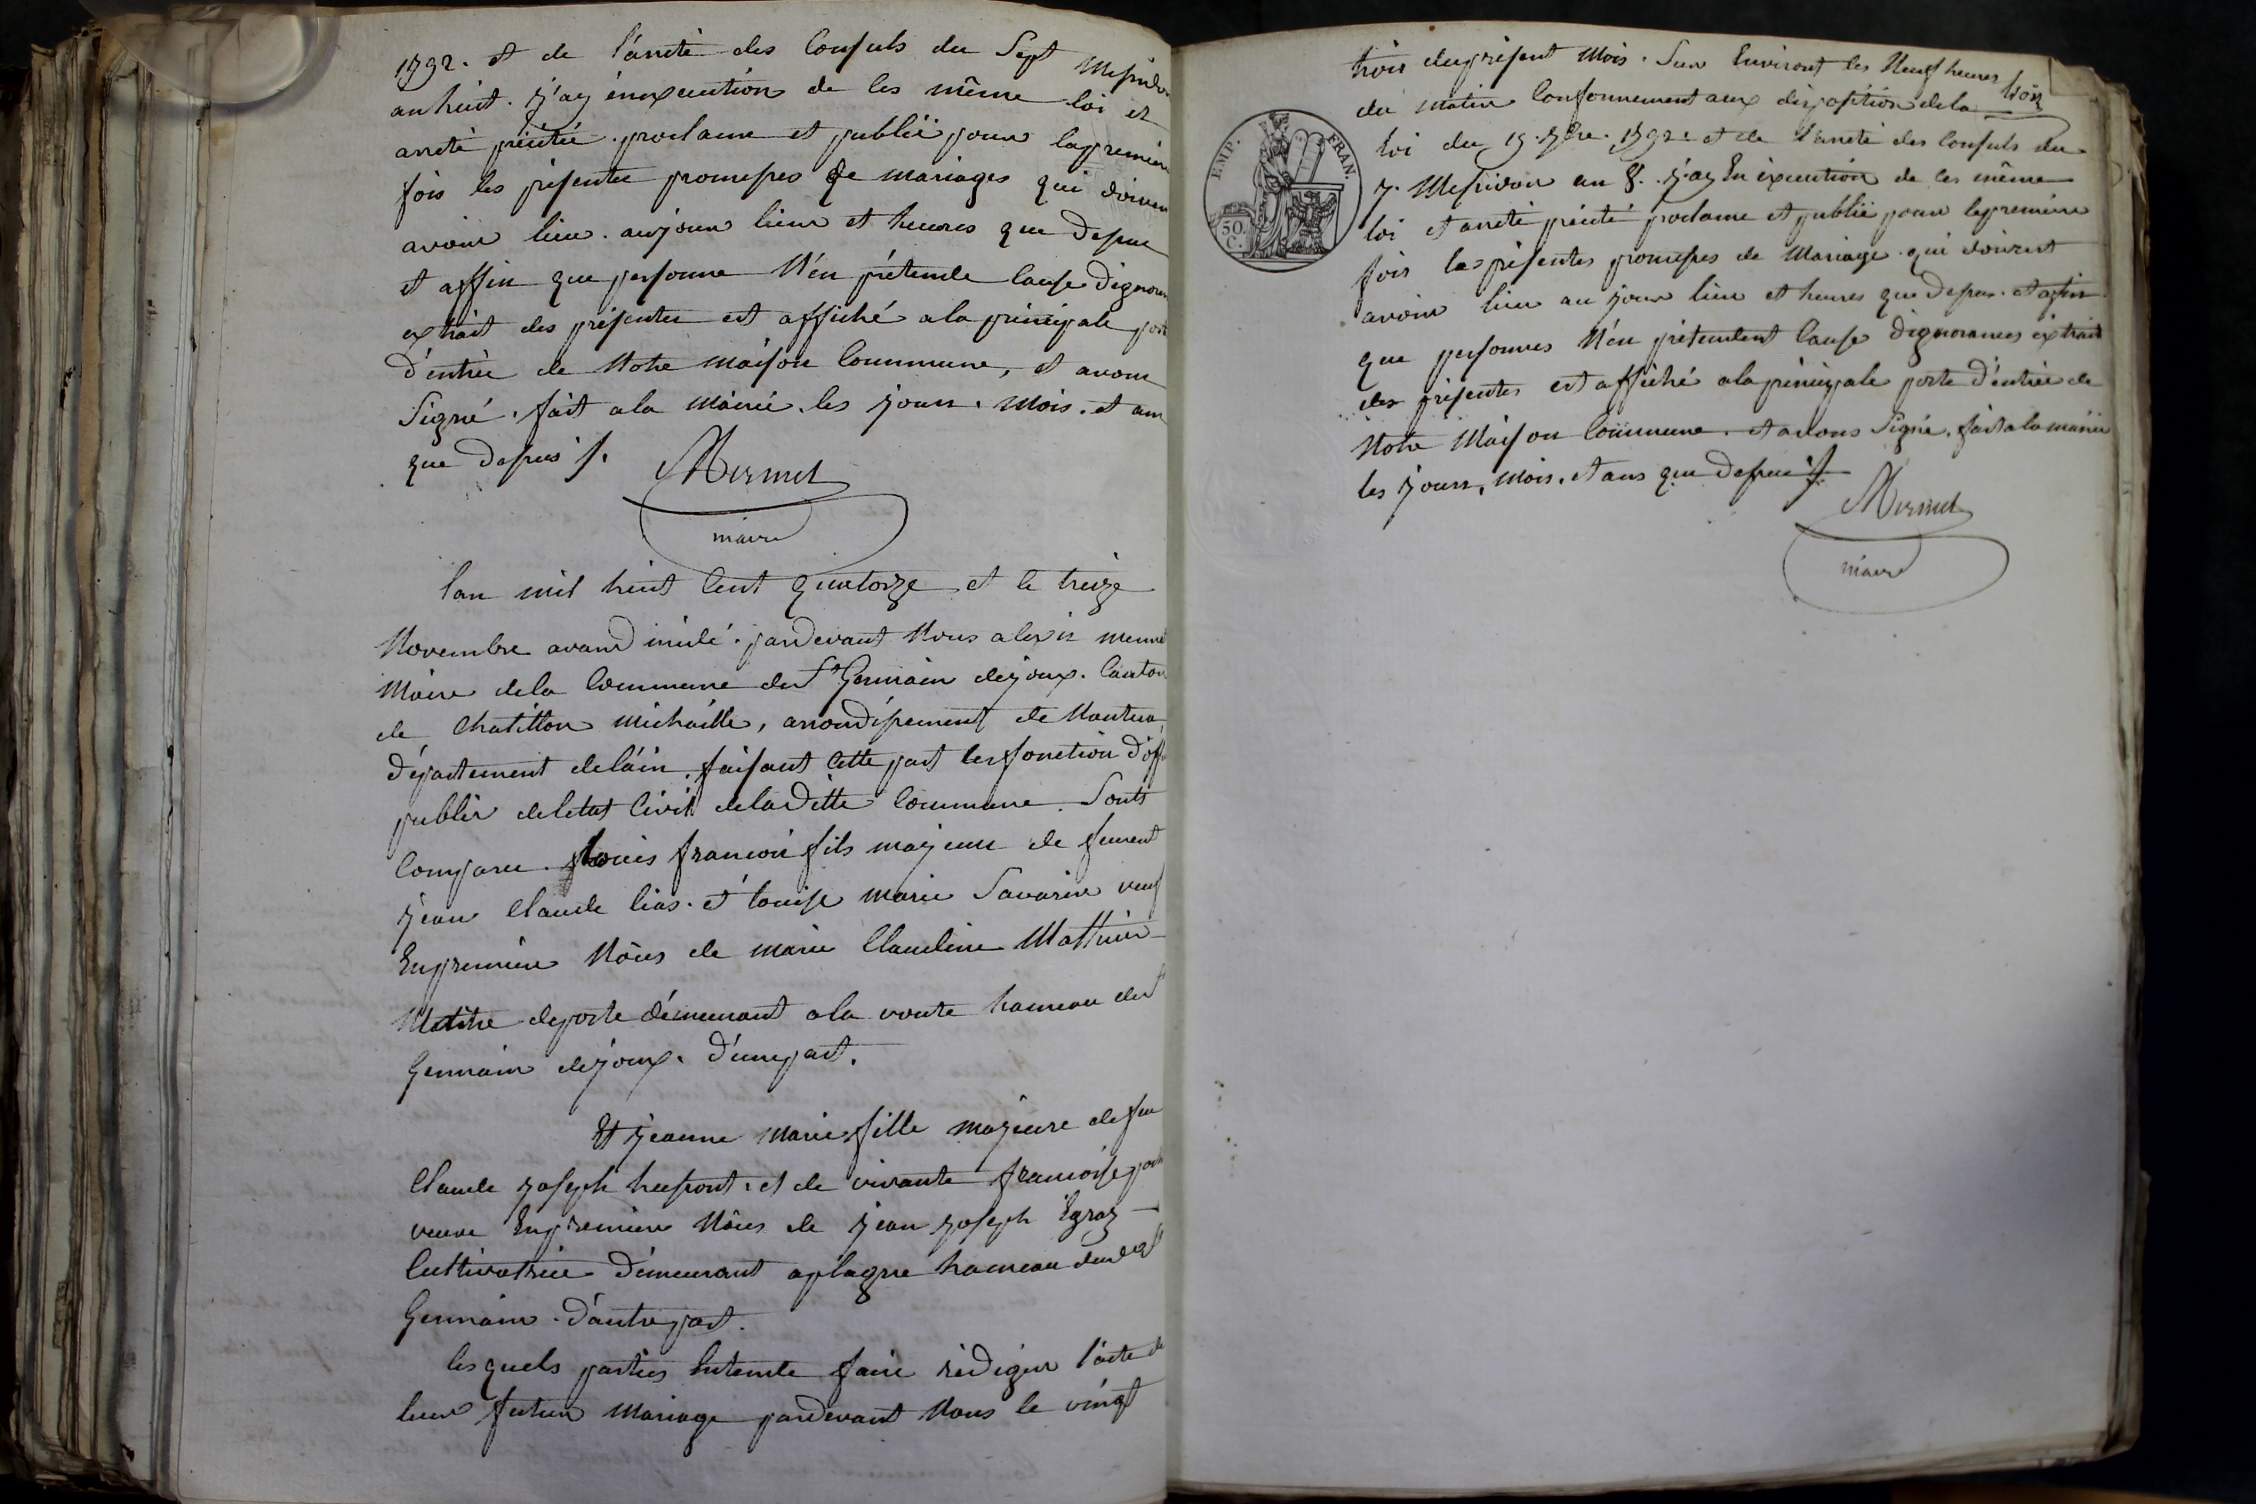 1792. et de l'arreté des Consuls du Sept Messido
an huit. j'ay én execution de ces même loi et
arreté précité. proclame et publié pour la premiere
fois les présente promesses de mariages qui doiven
avoir lieu. aujour lieux et heures que dessus
et affin que personne N'én prétende Cause Dignoran
extrait des présentes est affiché a la principale port
d'éntrée de Notre maison Commune, et avons
Signé. fait a la Mairie. les jours. Mois. et an
que dessus ./.
Mermet
maire
lan mil huit Cent quatorze et le treize
Novembre avant midi. pardevant Nous alexis merme
Maire de la Commune de St Germain dejoux. Canton
de Chatillon Michaille, arrondissement de Nantua,
département de láin. faisant Cette part les fonction d'off
public deletat Civil de la ditte Commune. Sonts
Comparu. Louis francoi fils majeur de feurent
jean Claude lias. et louise marie Savarin veuf
En premiere Nôces de marie Claudine Mathieu
Maitre de poste démeurant a la voute hameau de St
Germain dejoux. d'une part.
Et jeanne Marie fille majeure de feu
Claude joseph huport. et de vivante francoise
veuve En premiere Nôces de jean joseph Egraz
Cultivatrice démeurant a plagne hameau dudt St
Germain. d'autre part.
lesquels parties Entende faire rédiger l'acte de
leur futur Mariage pardevant Nous le vingt
trois du présent Mois. Sur Environt les Neuf heures
trois
du matin Conformement aux disposition de la
EMP. FRAN.
50. C.
loi du 19. 7bre. 1792. et de l'arreté des Consuls du
7. Messidor an 8. j'ay En éxecution de ces même
loi et arreté précité proclame et publié pour la premiere
fois las présentes promesses de Mariage. qui doivent
avoir lieu au jour lieu et heures que dessus. et afin
que personnes N'én prétendent Cause dignorances éxtrait
des présentes est affiché a la principale porte d'éntrée de
Notre Maison Commune. et avons Signé. fait a la mairie
les jours, Mois. et ans que dessus ./.
Mermet
maire